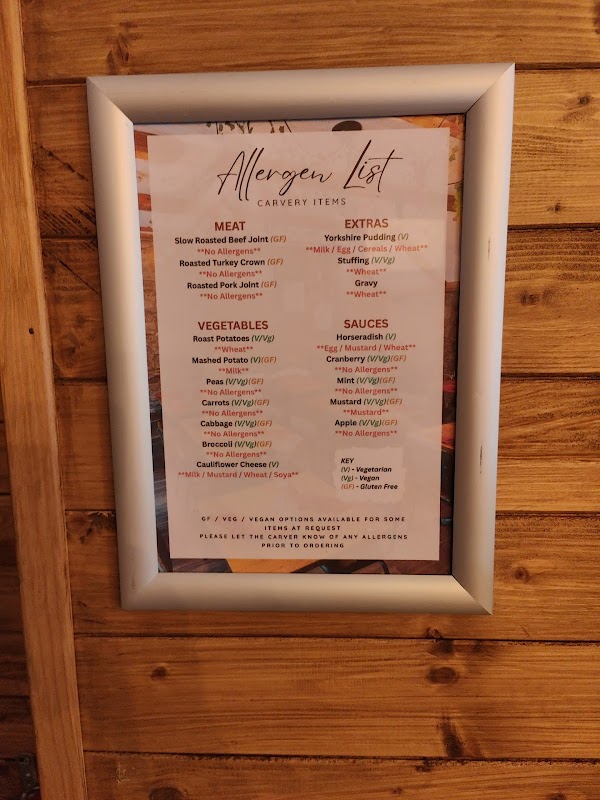 Allergen List
CARVERY ITEMS
MEAT
Slow Roasted Beef Joint (GF)
**No Allergens**
Roasted Turkey Crown (GF)
**No Allergens**
Roasted Pork Joint (GF)
**No Allergens**
EXTRAS
Yorkshire Pudding (V)
**Milk / Egg / Cereals / Wheat**
Stuffing (V/Vg)
**Wheat**
Gravy
**Wheat**
VEGETABLES
Roast Potatoes (V/Vg)
**Wheat**
Mashed Potato (V)(GF)
**Milk**
Peas (V/Vg)(GF)
**No Allergens**
Carrots (V/Vg)(GF)
**No Allergens**
Cabbage (V/Vg)(GF)
**No Allergens**
Broccoli (V/Vg)(GF)
**No Allergens**
Cauliflower Cheese (V)
**Milk / Mustard / Wheat / Soya**
SAUCES
Horseradish (V)
**Egg / Mustard / Wheat**
Cranberry (V/Vg)(GF)
**No Allergens**
Mint (V/Vg)(GF)
**No Allergens**
Mustard (V/Vg)(GF)
**Mustard**
Apple (V/Vg)(GF)
**No Allergens**
KEY
(V) - Vegetarian
(Vg) - Vegan
(GF) - Gluten Free
GF / VEG / VEGAN OPTIONS AVAILABLE FOR SOME
ITEMS AT REQUEST
PLEASE LET THE CARVER KNOW OF ANY ALLERGENS
PRIOR TO ORDERING